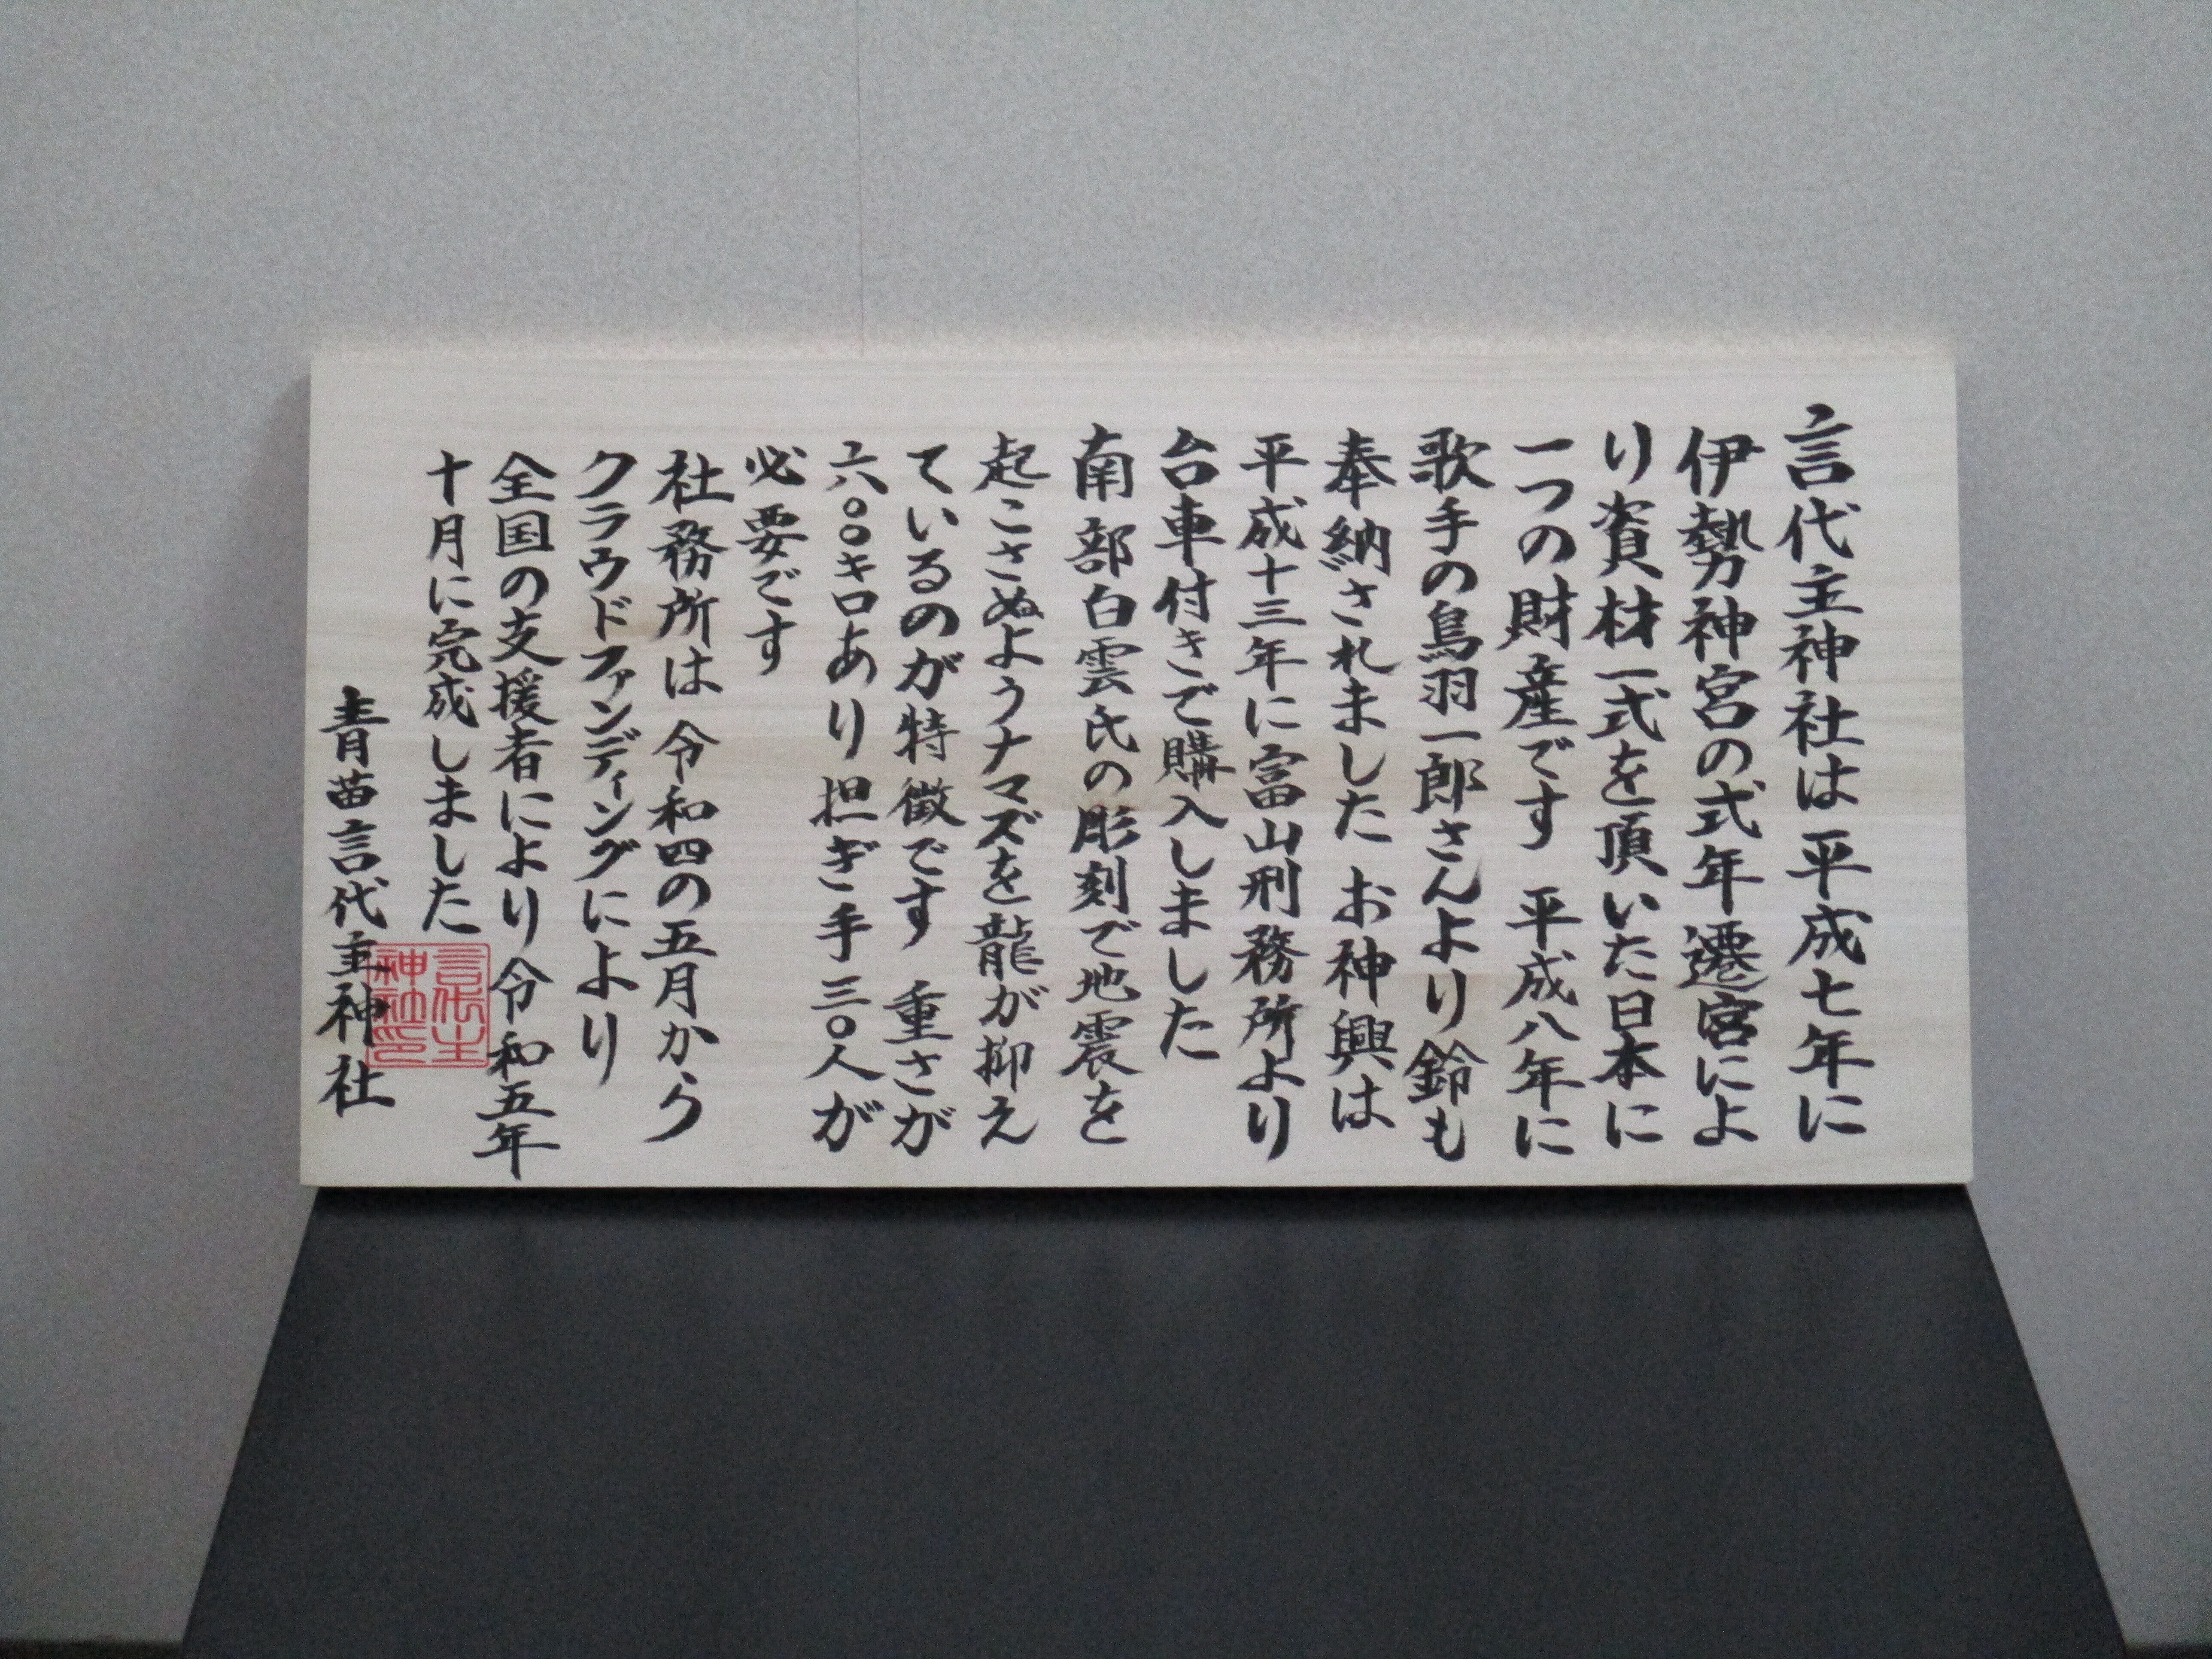 言代主神社は平成七年に
伊勢神宮の式年遷宮によ
り資材一式を頂いた日本に
一つの財産です 平成八年に
歌手の鳥羽一郎さんより鈴も
奉納されました お神興は
平成十三年に富山刑務所より
台車付きで購入しました
南部白雲氏の彫刻で地震を
起こさぬようナマズを龍が抑え
ているのが特徴です 重さが
六〇〇キロあり担ぎ手三〇人が
必要です
社務所は令和四の五月から
クラウドファンディングにより
全国の支援者により令和五年
十月に完成しました
青苗言代主神社
言代主
神社印